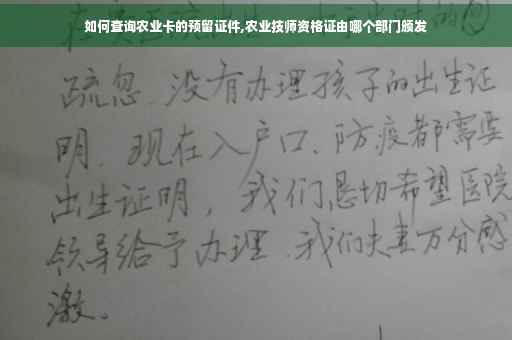 如何查询农业卡的预留证件,农业技师资格证由哪个部门颁发
疏忽、没有办理孩子的出生证
明、现在入户口、防疫都需要
出生证明，我们恳切希望医院
领导给予办理、我们夫妻万分感
激。